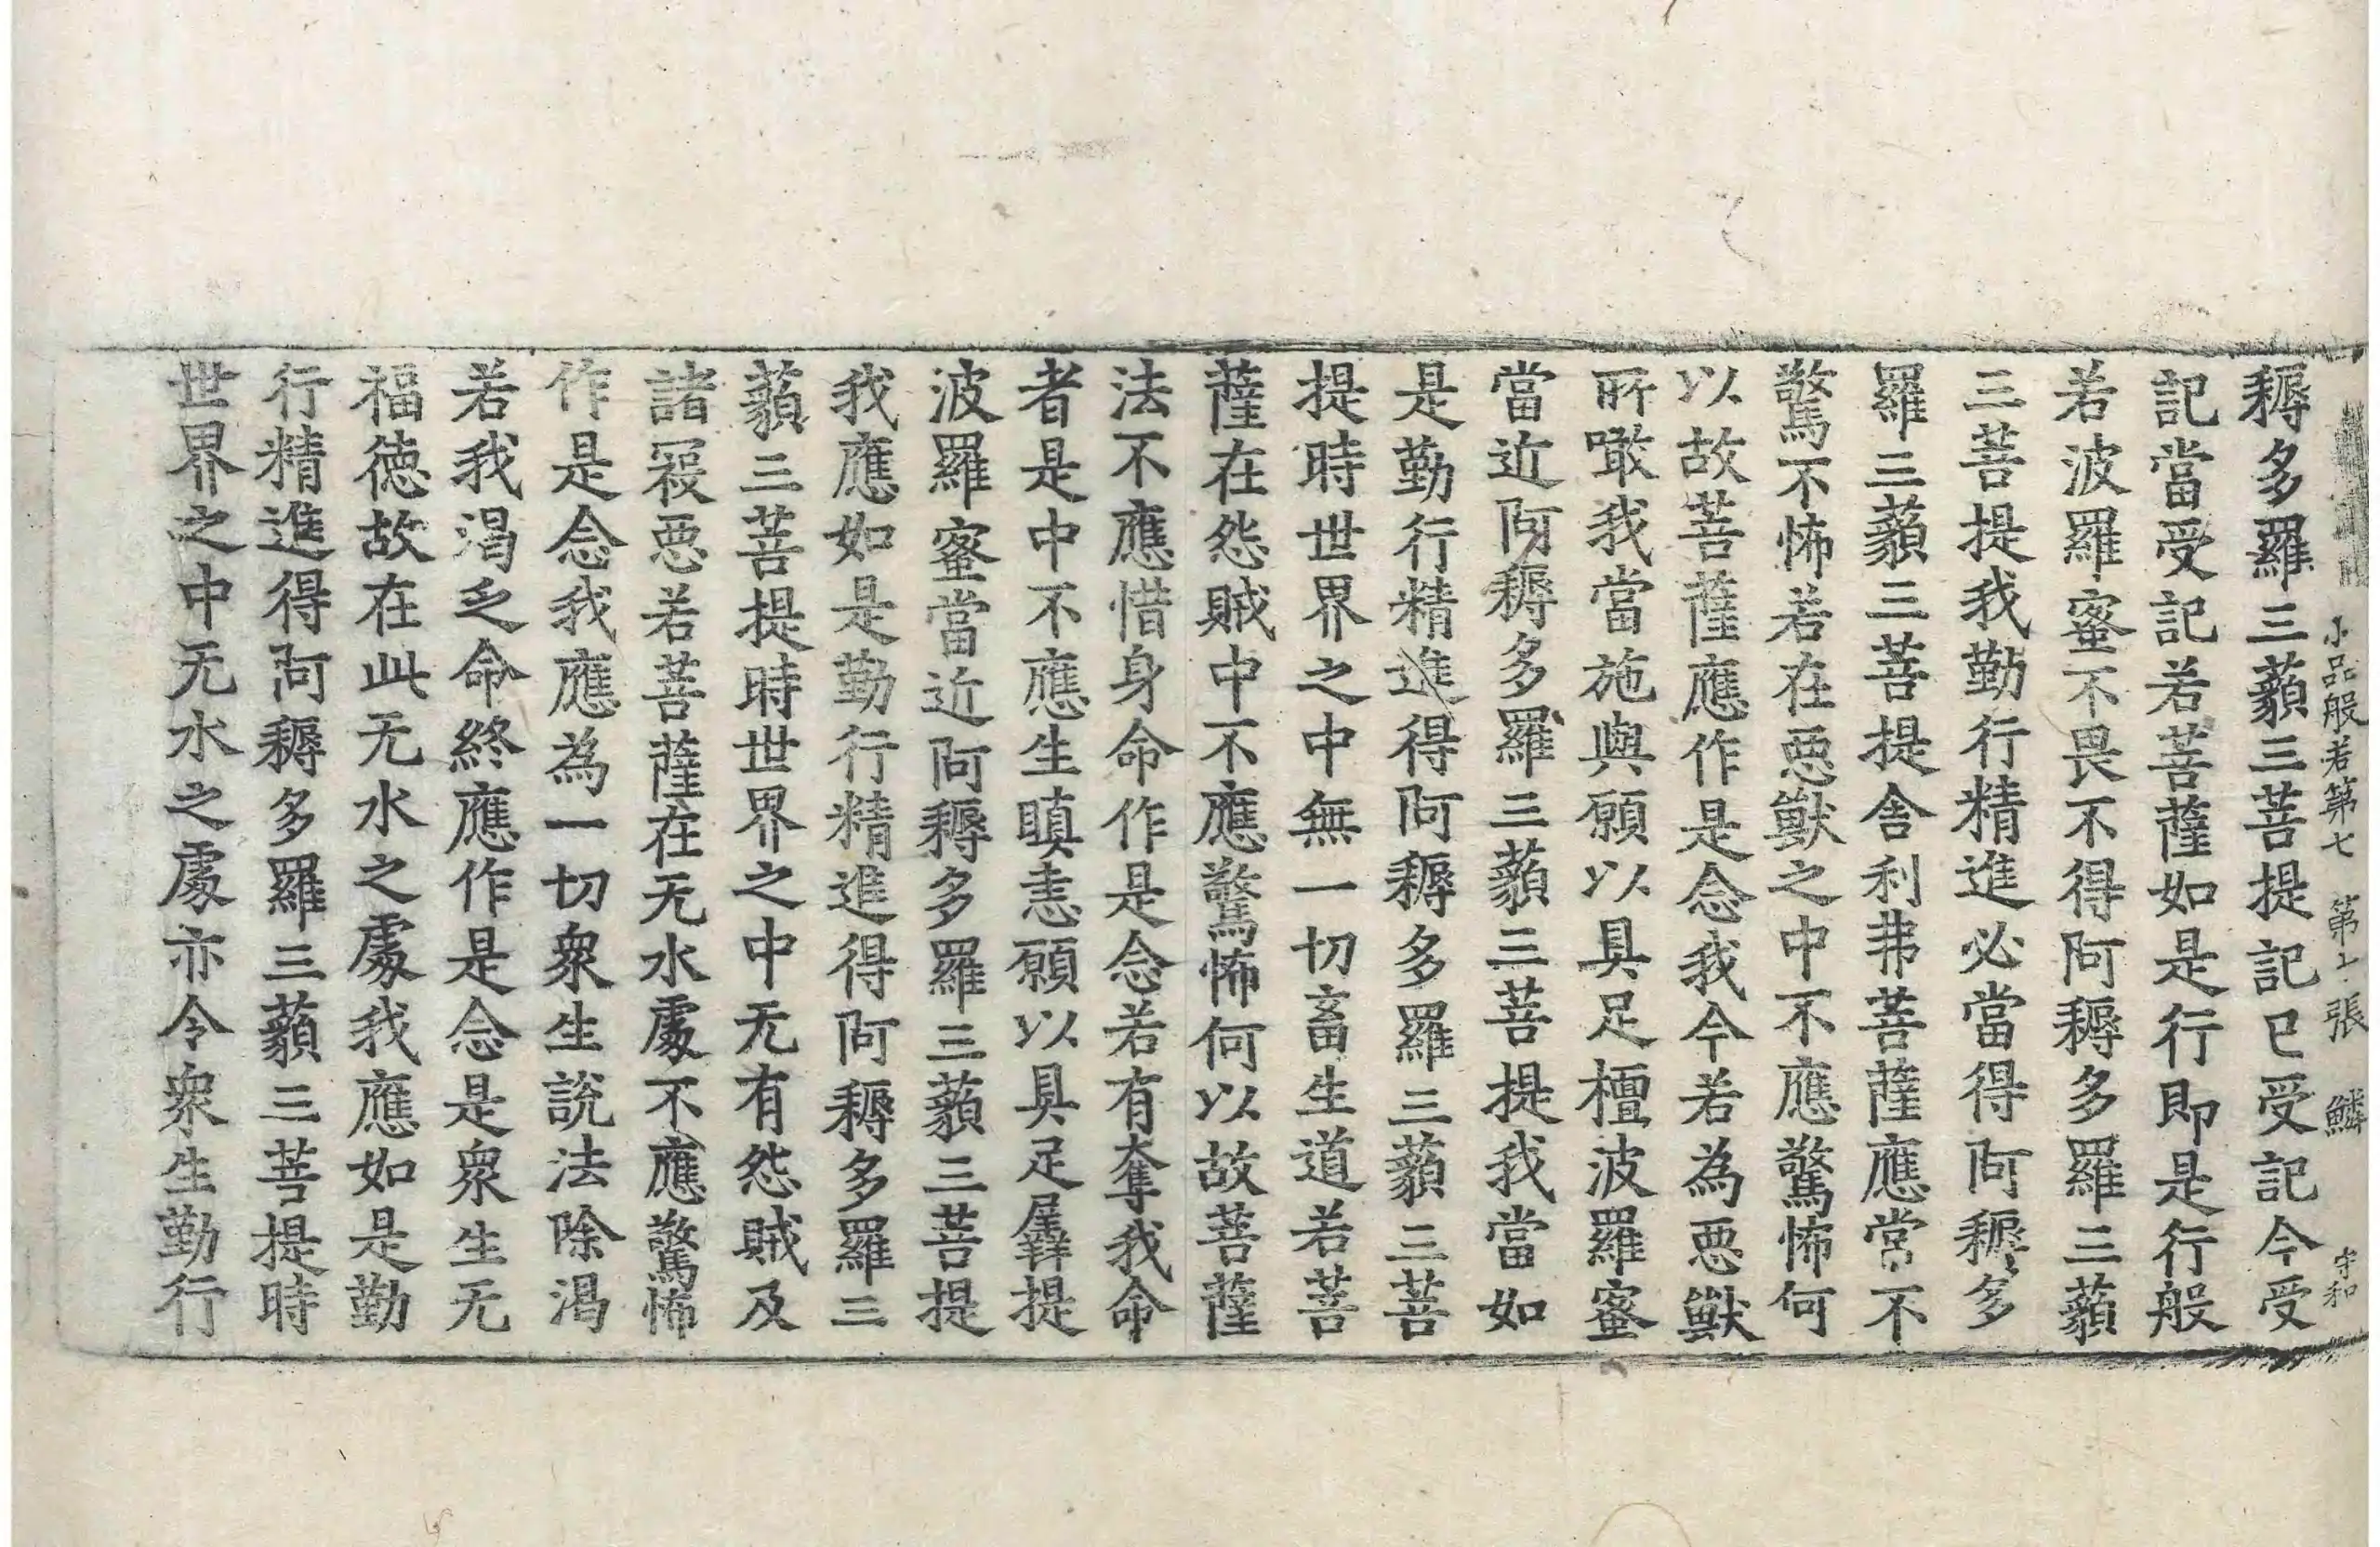 小品般若第七　第十張　鱗　守和
耨多羅三藐三菩提記已受記今受
記當受記若菩薩如是行即是行般
若波羅蜜不畏不得阿耨多羅三藐
三菩提我勤行精進必當得阿耨多
羅三藐三菩提舍利弗菩薩應常不
驚不怖若在惡獸之中不應驚怖何
以故菩薩應作是念我今若為惡獸
所噉我當施與願以具足檀波羅蜜
當近阿耨多羅三藐三菩提我當如
是勤行精進得阿耨多羅三藐三菩
提時世界之中無一切畜生道若菩
薩在怨賊中不應驚怖何以故菩薩
法不應惜身命作是念若有奪我命
者是中不應生瞋恚願以具足羼提
波羅蜜當近阿耨多羅三藐三菩提
我應如是勤行精進得阿耨多羅三
藐三菩提時世界之中无有怨賊及
諸寇惡若菩薩在无水處不應驚怖
作是念我應為一切衆生說法除渴
若我渴乏命終應作是念是衆生无
福徳故在此无水之處我應如是勤
行精進得阿耨多羅三藐三菩提時
世界之中无水之處亦令衆生勤行